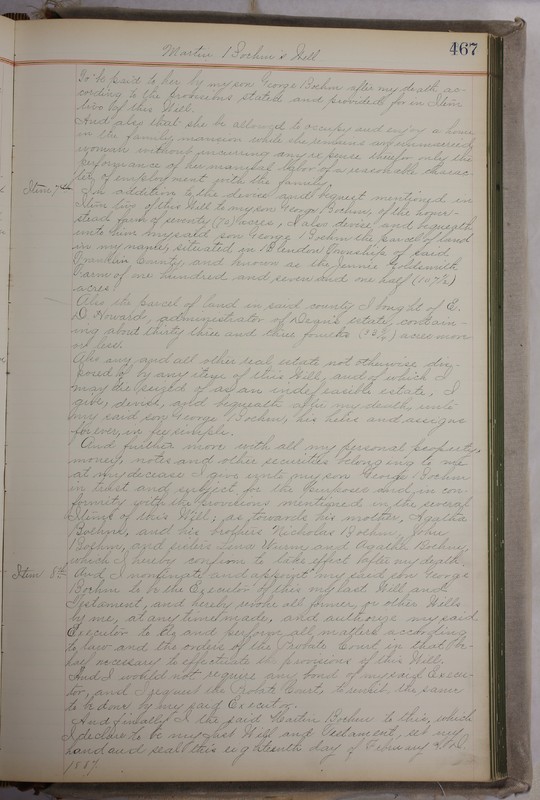 467
Martin Boehm's Will
To be paid to her by my son George Boehm after my death, ac-
cording to the provisions stated and provided for in Item
two of this Will.
And also that she be allowed to occupy and enjoy a home
in the family mansion while she remains an unmarried
woman without incurring any expense therefor only the
performance of her manual labor of a reasonable charac-
ter of employment with the family.
Item 7th In addition to the devise and bequest mentioned in
Item two of this Will to my son George Boehm, of the home-
stead farm of seventy (70) acres, I also devise and bequeath
unto him my said son George Boehm the parcel of land
in my name, situated in Blendon Township of said
Franklin County, and known as the Jennie Goldsmith
farm of one hundred and seven and one half (107½)
acres.
Also the parcel of land in said county I bought of E.
D. Howard, administrator of estate, contain-
ing about thirty three and three fourths (33¾) acres more
or less.
Also any and all other real estate not otherwise dis-
posed of by any item of this Will, and of which I
may die seized of as an indefeasible estate, I
give, devise, and bequeath after my death, unto
my said son George Boehm, his heirs and assigns
forever, in fee simple.
And further more with all my personal property,
money, notes and other securities belonging to me
at my decease I give unto my son George Boehm
in trust and subject for the purposes and in con-
formity with the provisions mentioned in the several
Items of this Will; as towards his mother, Agatha
Boehm, and his brothers Nicholas Boehm, John
Boehm, and sisters Lena Wurm and Agatha Boehm,
which I hereby confirm to take effect after my death.
Item 8th And I nominate and appoint my said son George
Boehm to be the Executor of this my last Will and
Testament, and hereby revoke all former, or other Wills
by me, at any time made, and authorize my said
Executor to do and perform all matters according
to law and the orders of the Probate Court in that be-
half necessary to effectuate the provisions of this Will.
And I would not require any bond of my said Execu-
tor, and I request the Probate Court, the same
to be done by my said Executor.
And finally I the said Martin Boehm to this, which
I declare to be my last Will and Testament, set my
hand and seal this eighteenth day of February A.D.
1887